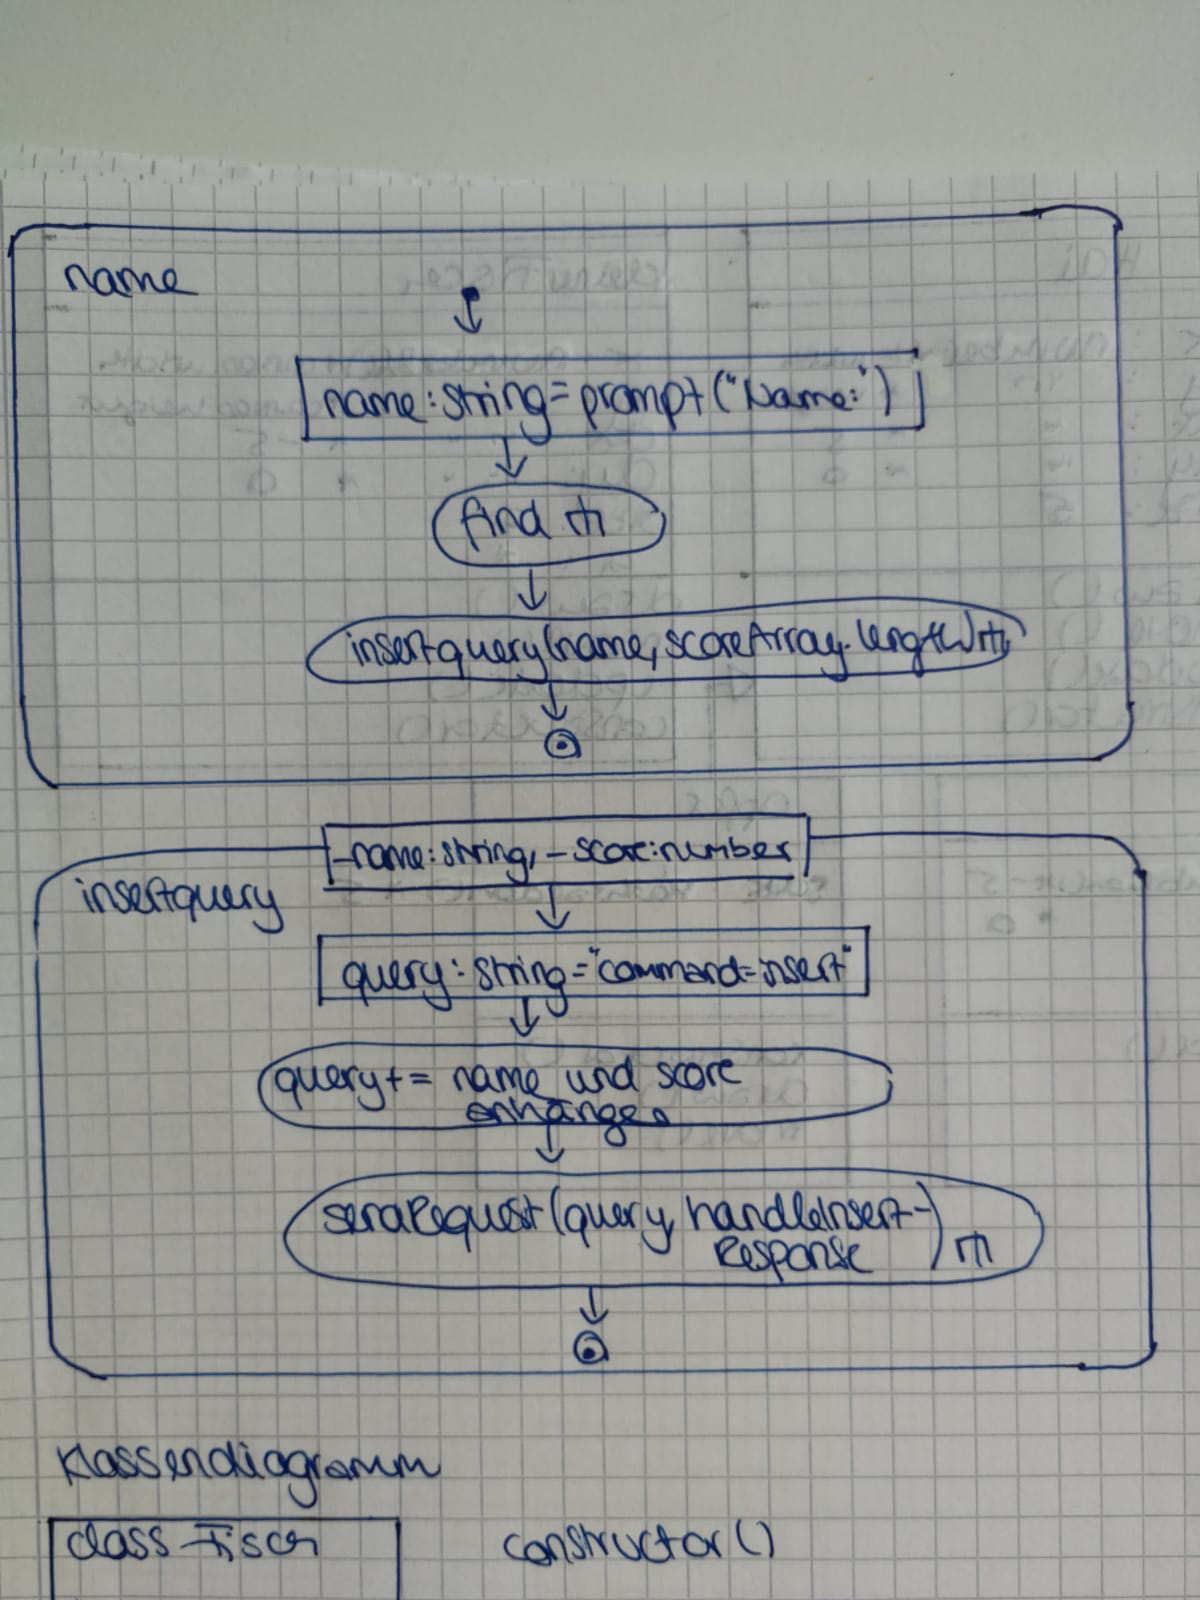 name
name: string = prompt("Name:")
find
insertquery(name, scoreArray.length)
_name: string, _score: number
insertquery
query: string = "command=insert"
query += name und score
anhängen
sendRequest(query, handleInsert-
Response)
Klassendiagramm
class Fisch
constructor()